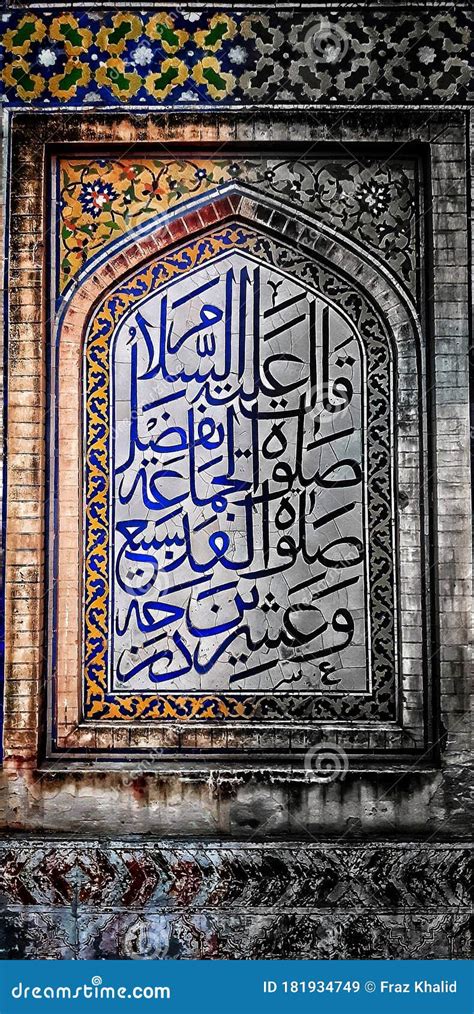 قال عليه السلام
صلوة الجماعة تفضل
صلوة الفذ بسبع
وعشرين درجة
dreamstime.com
ID 181934749 © Fraz Khalid